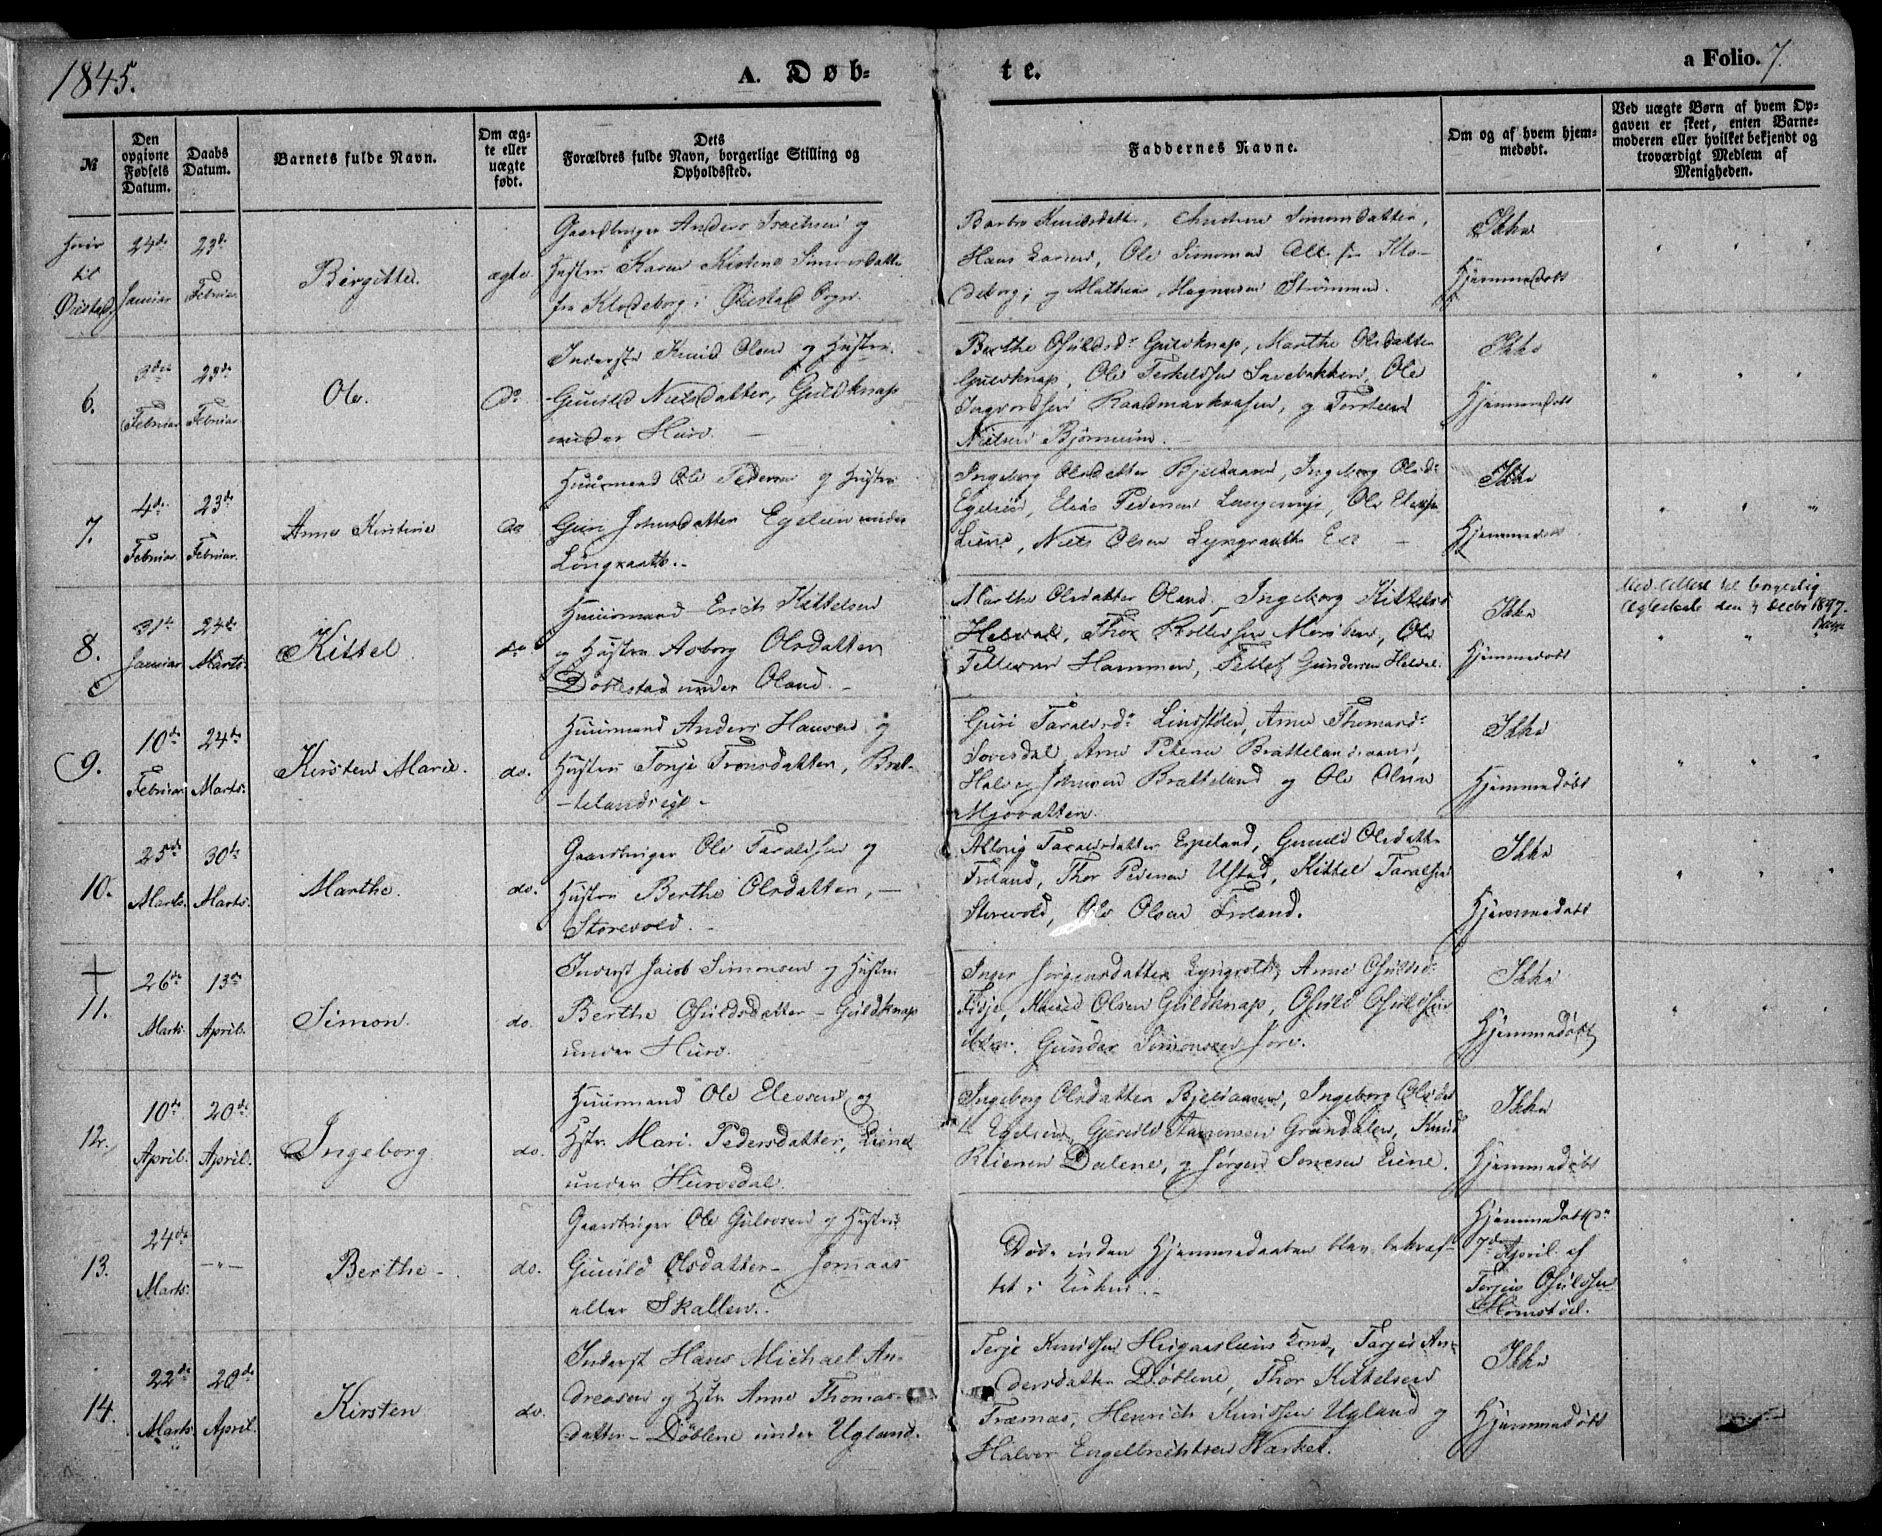 1845.
A. Døb-
te.
a Folio. 7.
№
Den opgivne Fødsels Datum.
Daabs Datum.
Barnets fulde Navn.
Om ægte eller uægte født.
Dets
Forældres fulde Navn, borgerlige Stilling og
Opholdssted.
Faddernes Navne.
Om og af hvem hjem-
medøbt.
Ved uægte Børn af hvem Op-
gaven er skeet, enten Barne-
moderen eller hvilket bekjendt og
troværdigt Medlem af
Menigheden.
til
Øiestad
24de Januar
23de Februar
Birgitte
ægte
Gaardbruger Anders Isachsen og
Hustru Karen Kirstine Simonsdatter
fra Klodeborg i Øiestad Sogn.
Barbro Knudsdatter, Simonsdatter,
Hans Larsen, Ole Simonsen Alle fra Klo-
deborg; og Mathias Magnusen Strømmen.
Ikke
Hjemmedøbt
6.
3die Februar
23de Februar
Ole.
do
Inderste Knud Olsen og Hustru
Gunild Nielsdatter, Guldknap
under Hurv. –
Berthe Osuldsdr Guldknap, Marthe Olsdatter
Guldknap, Ole Terkildsen Savebakken, Ole
Ingvordsen, og Torsten
Nielsen
Ikke
Hjemmedøbt
7.
4de Februar.
23de Februar.
Anne Kirstine
do
Huusmand Ole Pedersen og Hustru
Guri Johnsdatter Egelien under
Longraath. –
Ingeborg Olsdatter Bjeldaasen, Ingeborg Olsd:
Egelien, Elias Pedersen, Ole Elevsen
Liene, Niels Olsen –
Ikke
Hjemmedøbt
8.
31te Januar
24de Marts.
Kittel
do
Huusmand Erich Kittelsen
og Hustru Asborg Olsdatter
under Oland. –
Marthe Olsdatter Oland, Ingeborg Kittelsd
Ole
Tellevsen Hammen, Tellef Gundersen
Ikke
Hjemmedøbt
den
1897.
9.
10de Februar
24de Marts.
Kirsten Marie.
do.
Huusmand Anders Hansen og
Hustru Tonje Tronsdatter, Brat-
telandseie –
Guri Taraldsdr Lindstølen, Anne Thomasd:
Arne Pedersen Brattelandsaasen,
Halvor Johnsen Bratteland og Ole Olsen
Mjovatten.
Ikke
Hjemmedøbt
10.
25de Marts.
30te Marts.
Marthe.
do.
Gaardbruger Ole Taraldsen og
Hustru Berthe Olsdatter, –
Storevold. –
Taraldsdatter Espeland, Gunild Olsdatter
Froland, Thor Pedersen Ufstad, Kittel Taraldsen
Storevold, Ole Olsen Froland.
Ikke
Hjemmedøbt
11.
26de Marts.
13de April.
Simon.
do.
Inderst Jacob Simonsen og Hustru
Berthe Osuldsdatter – Guldknap
under Hurv.
Inger Jørgensdatter Lyngroth, Anne Osuldsd:
Knud Olsen Guldknap, Osuld Osuldsen
Gunder Simonsen
Ikke
Hjemmedøbt
12.
10de April.
20de April.
Ingeborg
do.
Huusmand Ole Elevsen og
Hstr. Mari Pedersdatter, Liene
under Hurvedal.
Ingeborg Olsdatter Bjeldaasen, Ingeborg Olsdat-
ter Egelien, Grøndalen, Knud
Dalene, og Jørgen Liene.
Ikke
Hjemmedøbt
13.
24de Marts.
– " –
Berthe –
do.
Gaardbruger Ole Gulovsen og Hustru
Gunild Olsdatter – Jomaas
eller Skallen.
Døde inden Hjemmedaaben blev bekræf-
tet i Kirken. –
Hjemmedøbt d:
7de April af
Terjus Osuldsen
14.
22de Marts.
20de April.
Kirsten
do.
Inderst Hans Michael An-
dreasen og Hstr Anne Thomas-
datter – Døblene under Ugland.
Terje Knudsen Heigaasliens Kone, An-
dersdatter Døblene, Thor Kittelsen
Træmas, Henrich Knudsen Ugland og
Halvor Engelbrechtsen
Ikke
Hjemmedøbt